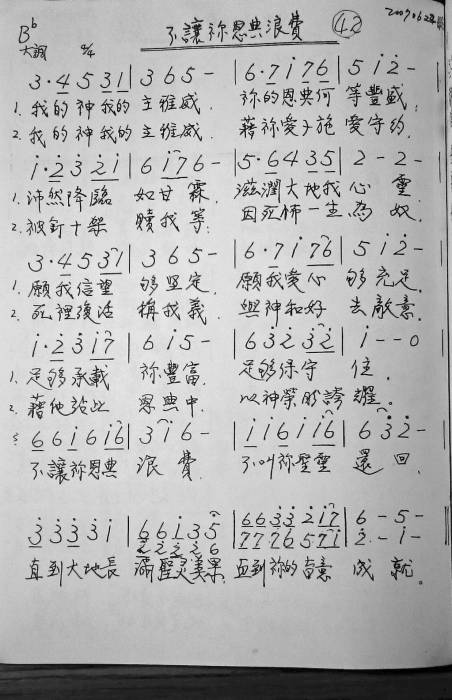 不讓祢恩典浪費 42
B♭ 大調 4/4
3·4 5 31 | 3 6 5 - | 6·7 i 76 | 5 i 2 -
1. 我的神我的 主雅威 祢的恩典何 等豐盛
2. 我的神我的 主雅威 藉祢愛子施 愛守約
i·2 3 2i | 6 i7 6 - | 5·6 4 35 | 2 - 2 -
1. 沛然降臨 如甘霖 滋潤大地我 心 靈
2. 被釘十架 贖我等 因死怖一生 為 奴
3·4 5 31 | 3 6 5 - | 6·7 i 76 | 5 i 2 -
1. 願我信望 夠堅定 願我愛心 夠充足
2. 死裡復活 稱我義 與神和好 去敵意
i·2 3 i7 | 6 i 5 - | 6 3 2 32 | i - - 0
1. 足夠承載 祢豐富 足夠保守 住
2. 藉他站此 恩典中 以神榮耶誇 耀。
6 6 i 6 i6 | 3 i 6 - | i i 6 i i6 | 6 3 2 -
不讓祢恩典 浪 費 不叫祢聖靈 還 回
3 3 3 3 i | 6 6 i 3 5 | 66 33 2 i7 | 6 - 5 -
2 2 2 2 6 | 77 76 5 7i | 2 - i -
直到大地長 滿聖灵美果 直到祢的旨意 成 就。